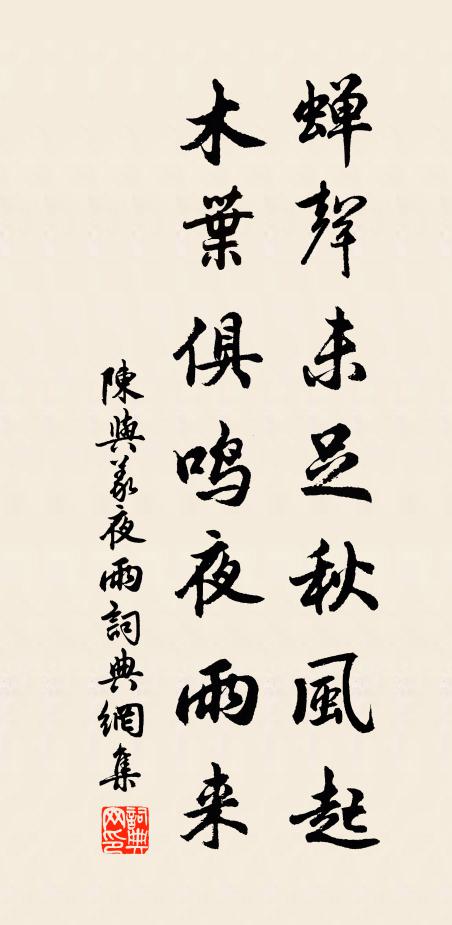 蝉聲未足秋風起
木葉俱鳴夜雨来
陳與義夜雨詞典網集
詞典網印